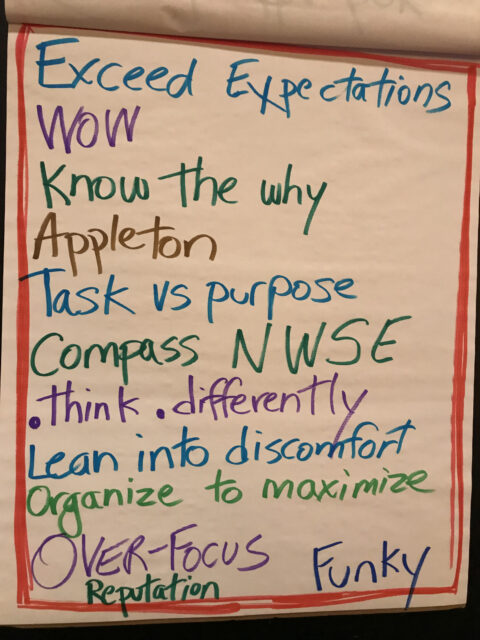 Exceed Expectations
WOW
Know the why
Appleton
Task vs purpose
Compass NWSE
.think .differently
Lean into discomfort
Organize to maximize
OVER-FOCUS
Funky
Reputation